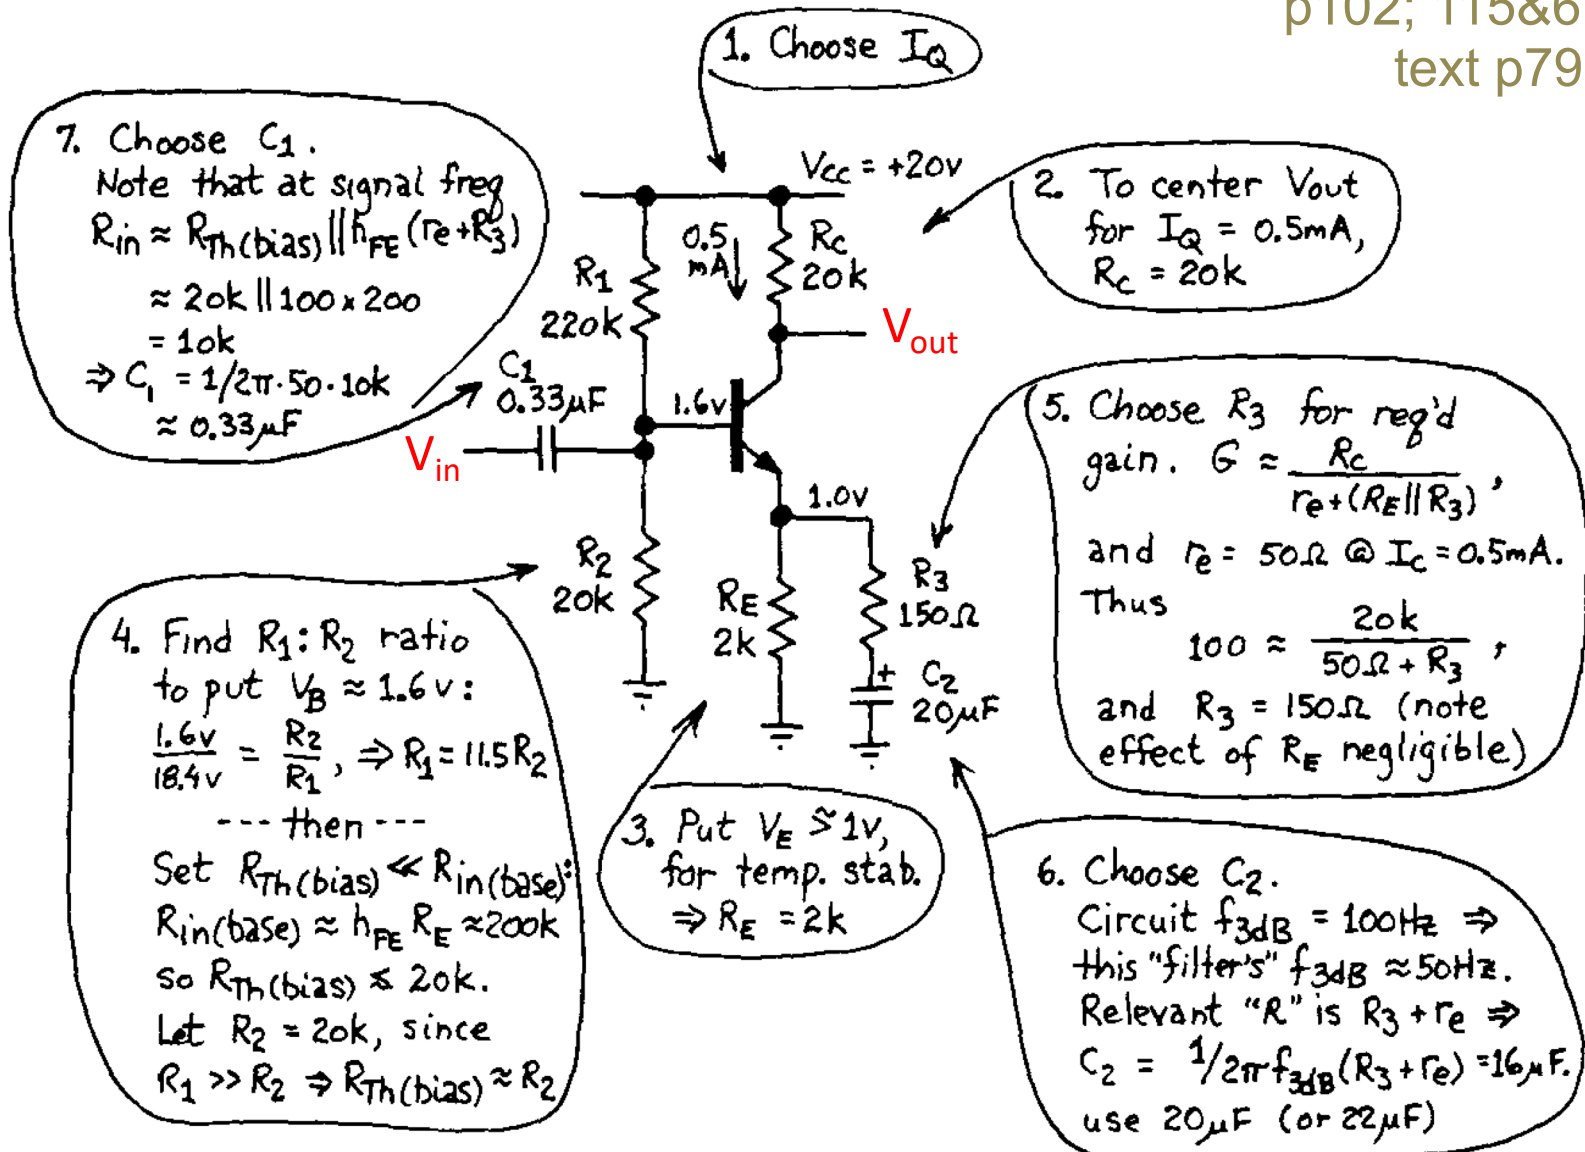 p102; 115&6
text p79
1. Choose I_Q
7. Choose C₁.
Note that at signal freq
R_in ≈ R_Th(bias) || h_FE (r_e + R_3)
≈ 20k || 100 x 200
= 10k
⇒ C₁ = 1/2π·50·10k
≈ 0.33μF
V_CC = +20v
0.5
mA
R_C
20k
R_1
220k
V_out
C_1
0.33μF
1.6v
V_in
1.0v
R_2
20k
R_E
2k
R_3
150Ω
+
C_2
20μF
2. To center Vout
for I_Q = 0.5mA,
R_C = 20k
5. Choose R_3 for req'd
gain. G ≈ R_C / (r_e + (R_E || R_3)),
and r_e = 50Ω @ I_C = 0.5mA.
Thus
100 ≈ 20k / (50Ω + R_3),
and R_3 = 150Ω (note
effect of R_E negligible)
4. Find R_1 : R_2 ratio
to put V_B ≈ 1.6v:
1.6v / 18.4v = R_2 / R_1, ⇒ R_1 = 11.5 R_2
--- then ---
Set R_Th(bias) ≪ R_in(base):
R_in(base) ≈ h_FE R_E ≈ 200k
so R_Th(bias) ≲ 20k.
Let R_2 = 20k, since
R_1 >> R_2 ⇒ R_Th(bias) ≈ R_2
3. Put V_E ≳ 1v,
for temp. stab.
⇒ R_E = 2k
6. Choose C_2.
Circuit f_3dB = 100Hz ⇒
this "filter's" f_3dB ≈ 50Hz.
Relevant "R" is R_3 + r_e ⇒
C_2 = 1/2π f_3dB (R_3 + r_e) = 16μF.
use 20μF (or 22μF)